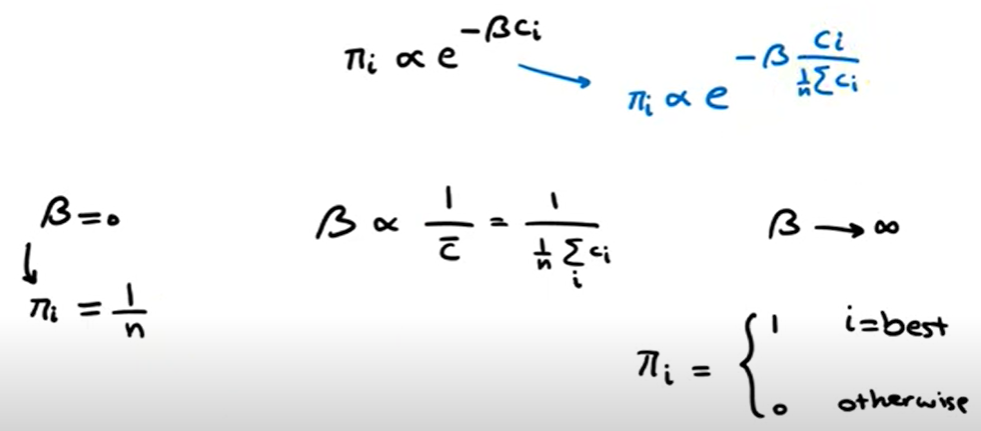 πᵢ ∝ e^(-βcᵢ) → πᵢ ∝ e^(-β cᵢ / (1/n Σcᵢ))
β=0 ↓ πᵢ = 1/n
β ∝ 1/c̄ = 1/(1/n Σᵢ cᵢ)
β → ∞
πᵢ = { 1 i=best
0 otherwise